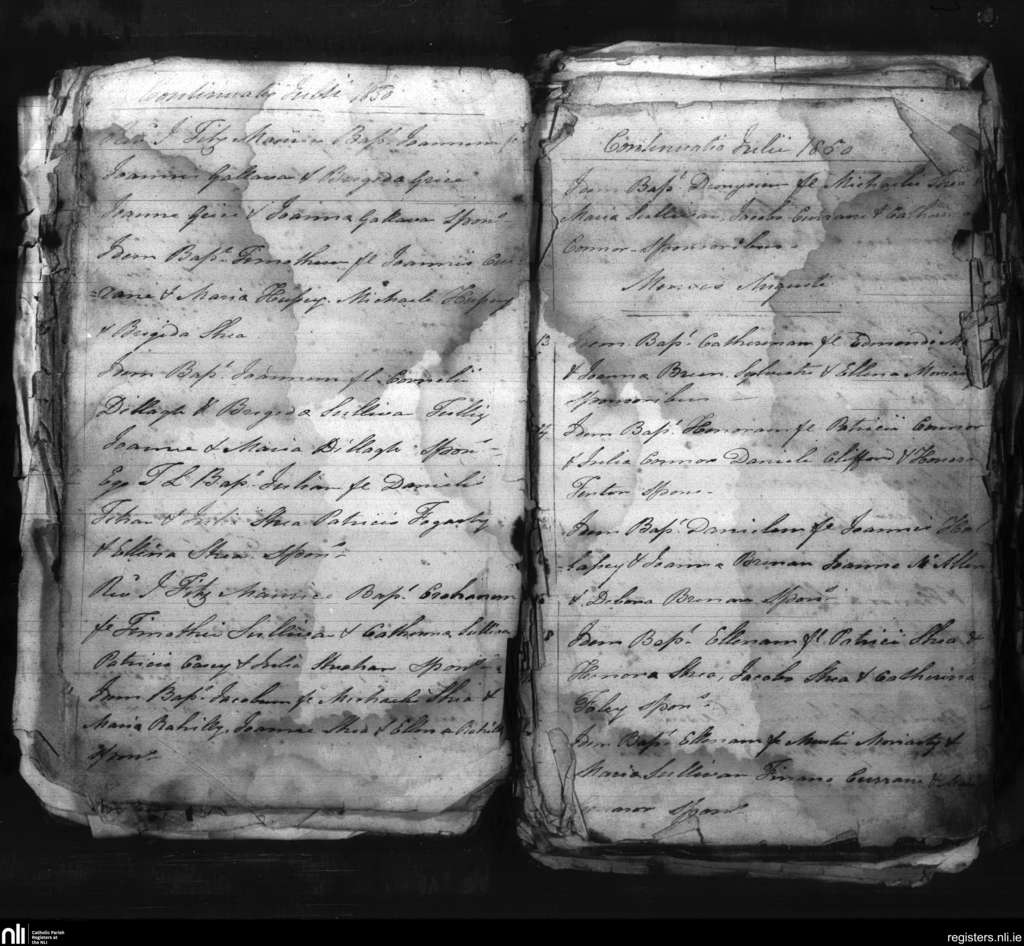 Continuatio Julii 1850
Revd J Fitz Maurice Bapt Joannem f
Joannis Gallava & Brigida Grice
Joanne Grice & Joanna Gallava Sponr
Idem Bapt Timotheum fl Joannis Cur
rane & Maria Hussey. Michaele Hussey
& Brigida Shea
Idem Bapt Joannem fl Cornelii
Dillagh & Brigida Sullivan
Joanne & Maria Dillagh Sponr
Ego T L Bapt Juliam fl Danieli
& Julia Shea Patricio Fogarty
& Ellena Shea Sponr
Rev J Fitz Maurice Bapt
fl Timothei Sullivan & Catherina Sulliva
Patricio Casey & Julia Sheahan Sponr
Idem Bapt Jacobum fl Michaelis Shea &
Maria Rahilly, Joannae Shea & Ellena Rahill
Sponr
Continuatio Julii 1850
Idem Bapt Dionysium fl Michaelis Shea
Maria Sullivan, Jacobo Currane & Catherina
Connor Sponsoribus
Mensis Augusti
13 Idem Bapt Catherinam fl Edmondi
& Joanna Breen. Sylvestro & Ellena Moriar
Sponsoribus
Idem Bapt Honoram fl Patricii Connor
& Julia Connor Danieli Clifford & Honora
Fenton Spons
Idem Bapt Danielem fl Joannis Hal
lapey & Joanna Brenan Joanne McAllen
& Debora Brenan Sponr
Idem Bapt Ellenam fl Patricii Shea &
Honora Shea, Jacobo Shea & Catherina
Foley Sponr
Idem Bapt Ellenam fl Moriarty &
Maria Sullivan Currane &
Sponr
nli
Catholic Parish
Registers at
the NLI
registers.nli.ie